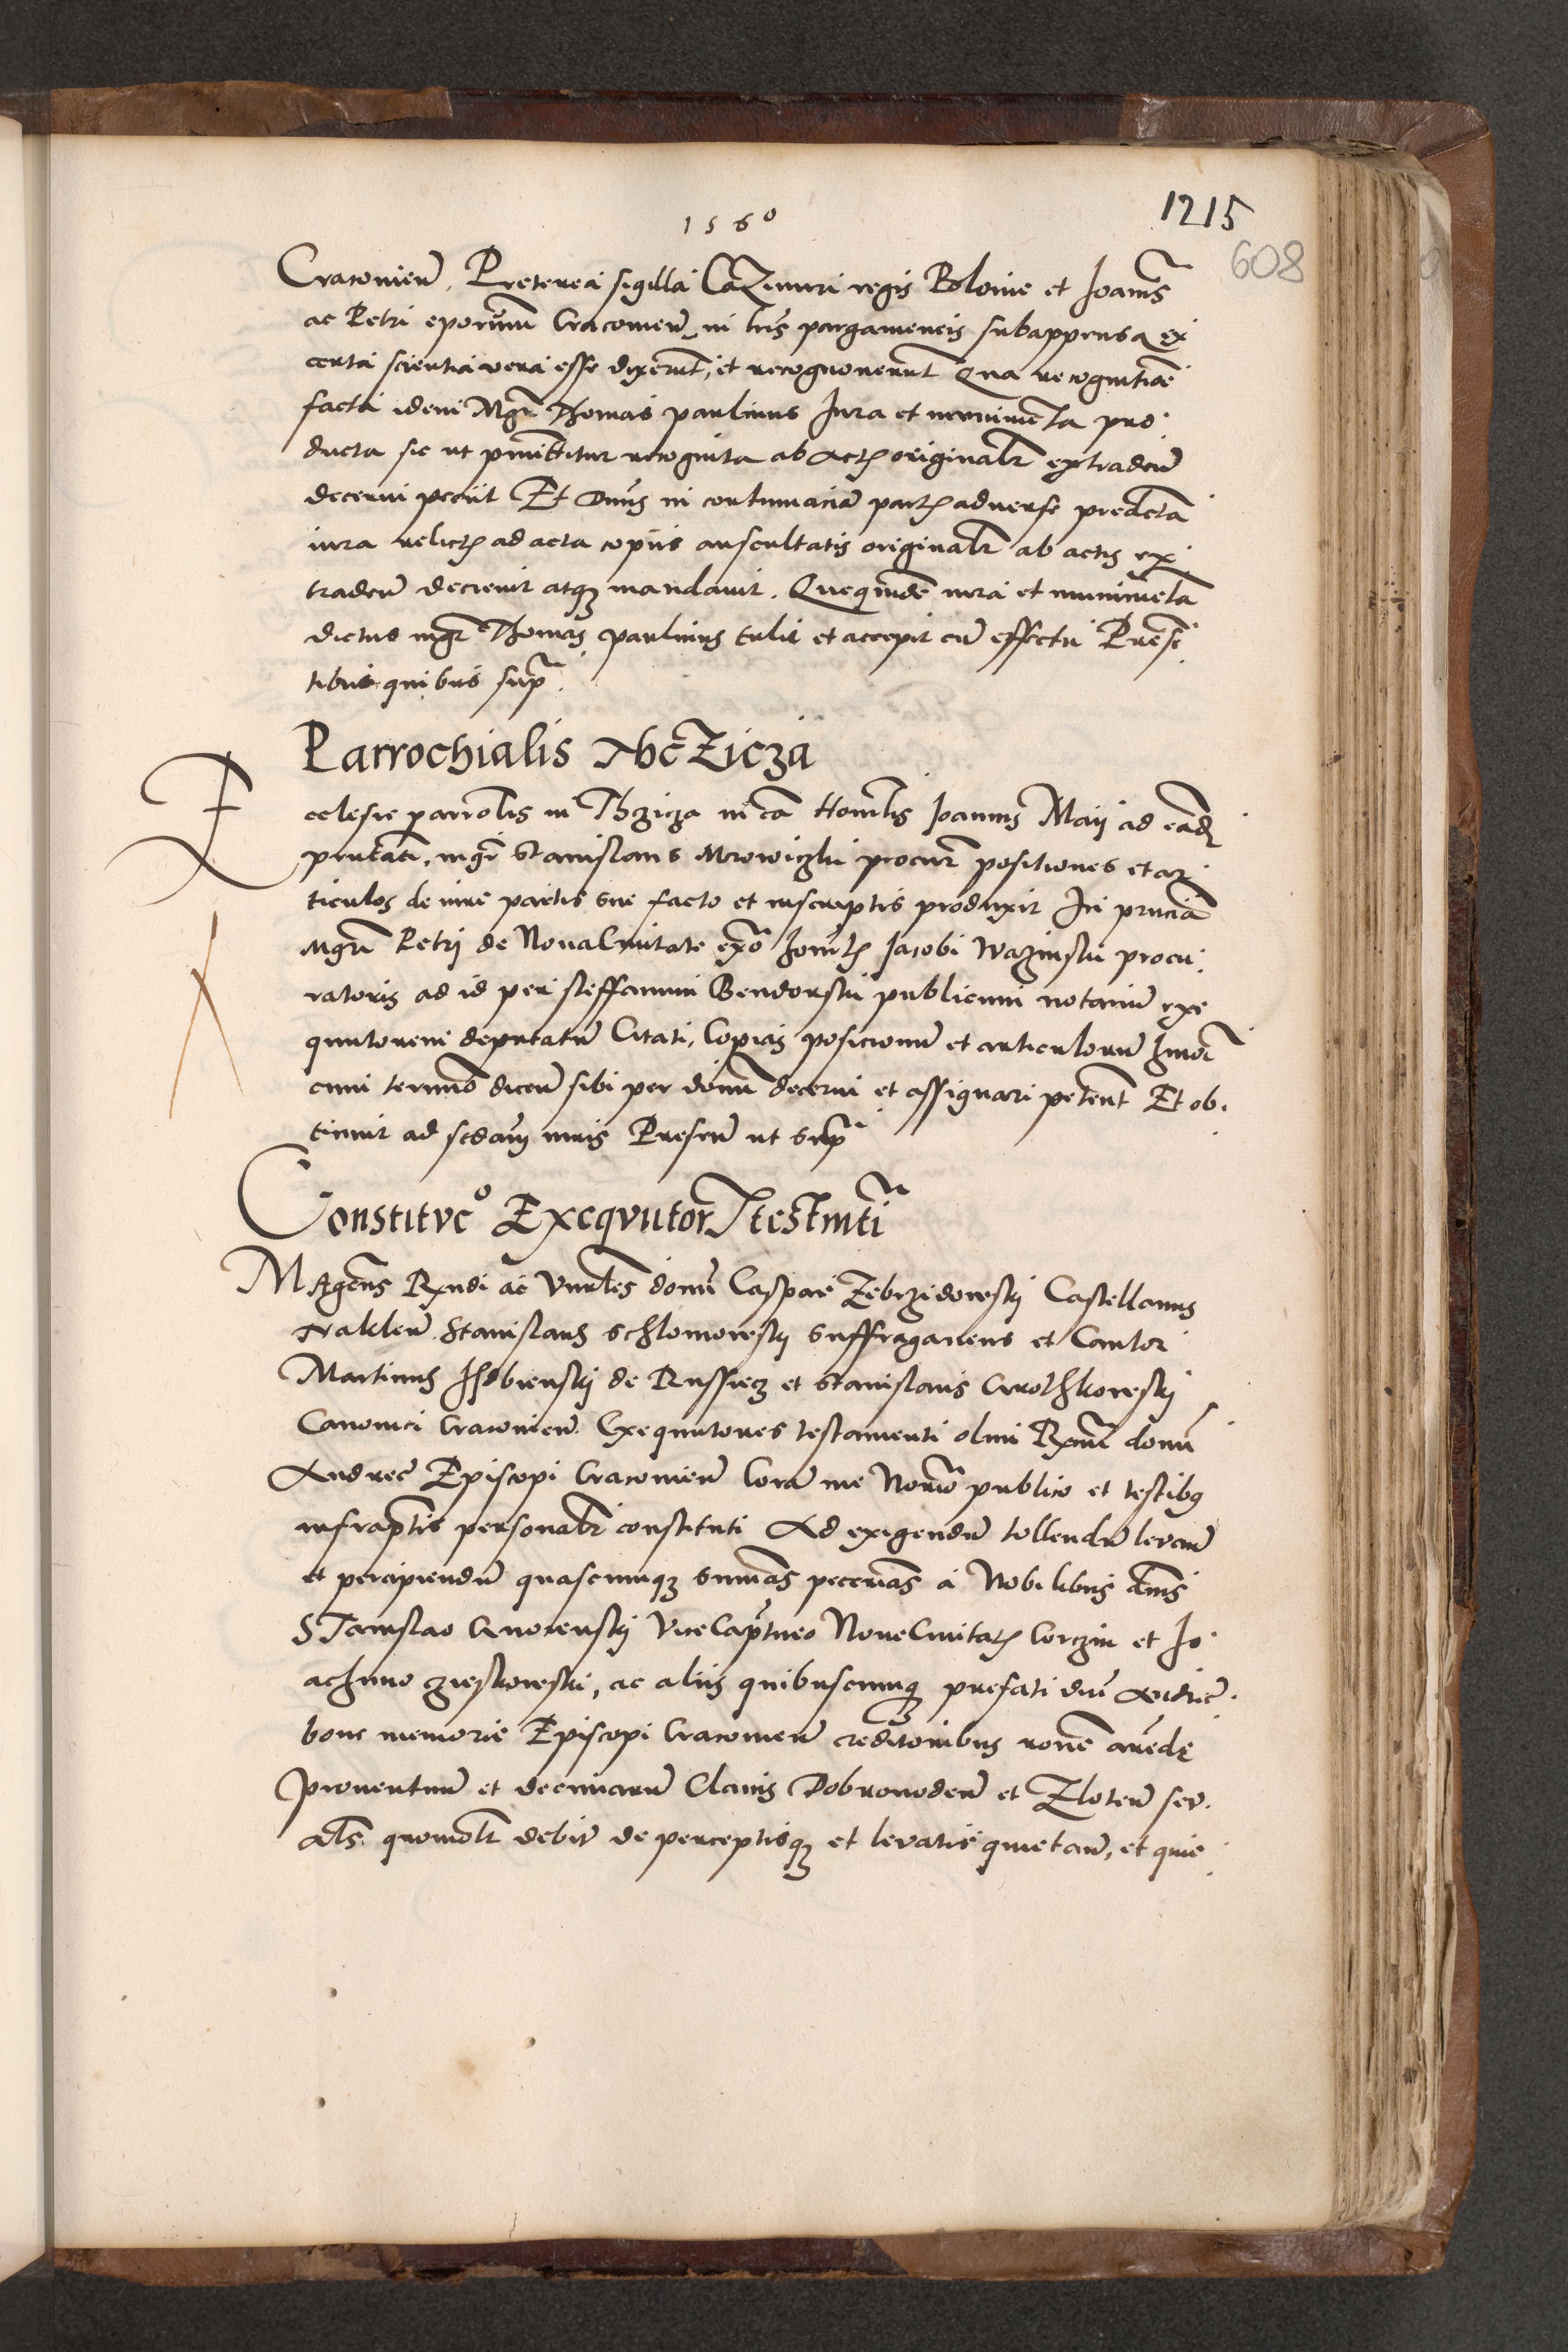 1560
1215
608
Cracovien̄. Preterea sigilla Cazimiri regis Polonie et Joannis
ac Petri eporum Cracovien̄ in lr̄is pargameneis subappensa ex
certa scientia vera esse dixerunt, et recognoverunt Qua recognitiōe
facta idem Mgr̄ Thomas paulinus Jura et munimenta pro
ducta sic ut pmittitur recognita ab actis originalr̄ extraden̄
decerni peciit Et Dn̄us in contumaciā partis adverse predicta
iura relictis ad acta copiis auscultatis originalr̄ ab actis ex
traden̄ decrevit atq3 mandavit. Quequidē iura et munimēta
dictus mgr̄ Thomas paulinus tulit et accepit cū effectu Presē
tibus quibus supr̄
Parrochialis Thczicza
Ecclesie parrolis in Thczicza in cā Hon̄lis Joannis Maij ad eād̄
pn̄tati, mgr̄ Stanislaus Mrowiczki procur̄ positiones et ar
ticulos de iure partis sue facto et inscriptis produxit In pn̄ciā
Mgri Petri de Nova Civitate ex̄o hon̄lis Jacobi Wazinski procu
ratoris ad id per steffanum Bendorski publicum notariū exe
quutorem deputatū Citati, Copias posicionū et articulorū hmōi
cum termīo dicen̄ sibi per dom̄ decerni et assignari peten̄t Et ob
tinuit ad scd̄am iuris Presen̄ ut supr̄
Constituc̄o Exequutor̄ testm̄ti
Magc̄us Rndi ac Vn̄rles domī Caspar Zebrzidowskj Castellanus
Naklen̄ Stanislaus Schlomowskj Suffraganeus et Cantor
Martinus Isdbienskj de Russiecz et Stanislaus
Canonici Cracovien̄ Exequutores testamenti olim Rxmi domī
Andree Episcopi Cracovien̄ Corā me Notrīo publico et testibus
infrapt̄is personalr̄ constituti Ad exigendū tollendū levan̄
et percipiendū quascumq3 summas pecunias a Nobilibus dn̄is
Stanislao Vice Captneo Nove Civitatis Corczin et Jo
achimo, ac aliis quibuscumq3 prefati dn̄i Andree
bone memorie Episcopi Cracovien̄ creditoribus rōne arēde
proventuū et decimarū Clavis Dobrovoden̄ et Zloten̄ seu
als̄ quomolr̄ debit̄ de perceptisq3 et levatis quietan̄, et quie